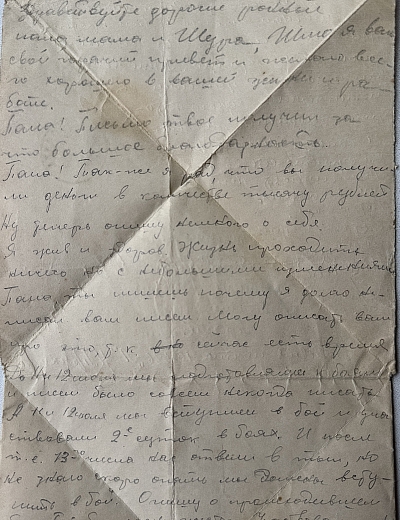 Здравствуйте дорогие родные
папа мама и Шура, Шлю я вам
свой горячий привет и желаю все-
го хорошо в вашей жизни и ра-
боте.
Папа! Письмо твое получил за
что большое благодарность.
Папа! Так-же я рад что вы получи
ли деньги в количестве тысячу рублей
Ну теперь опишу немного о себе
Я жив и здоров. Жизнь проходить
ничего но с небольшими
Папа, ты пишешь почему я долго не-
писал вам писем Могу описать вам
что это, т. к. сейчас есть время
До 11 и 12 июля мы к боям
и писем было совсем некогда писать
А 11 и 12 июля мы вступили в бой и уча
ствовали 2е суток в боях. И после
т.е. 13-го числа нас отвели в тыл, но
не знаю скоро опять мы должны всту-
пить в бой. Опишу о происходившем